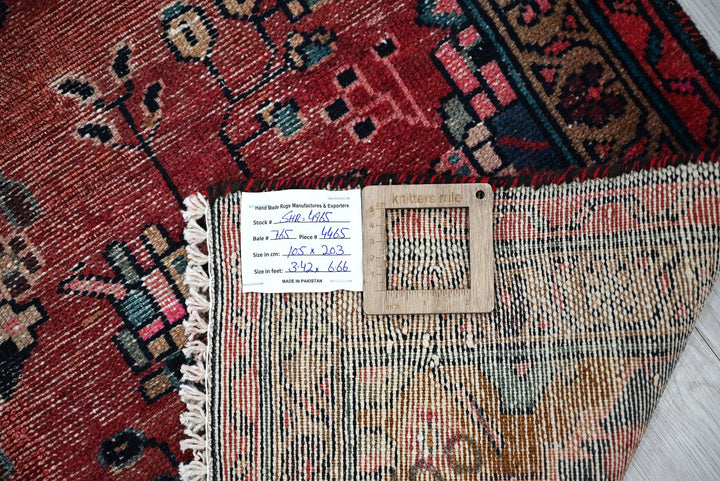 Hand Made Rugs Manufactures & Exporters
Stock # SHR-4965
Bale # 765 Piece # 4465
Size in cm: 105 x 203
Size in feet: 3.42 x 6.66
MADE IN PAKISTAN
knitters nile